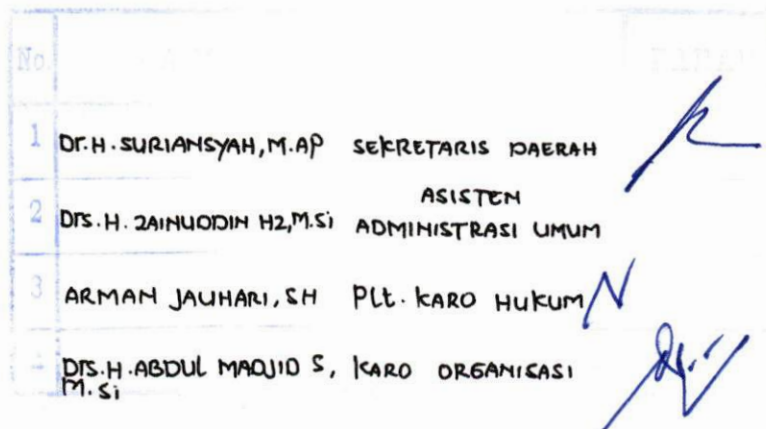 No.
1 Dr.H.SURIANSYAH, M.AP SEKRETARIS DAERAH
2 Drs.H.ZAINUDDIN HZ, M.Si ASISTEN ADMINISTRASI UMUM
3 ARMAN JAUHARI, SH Plt. KARO HUKUM
Drs.H.ABDUL MADJID S, KARO ORGANISASI
M.Si